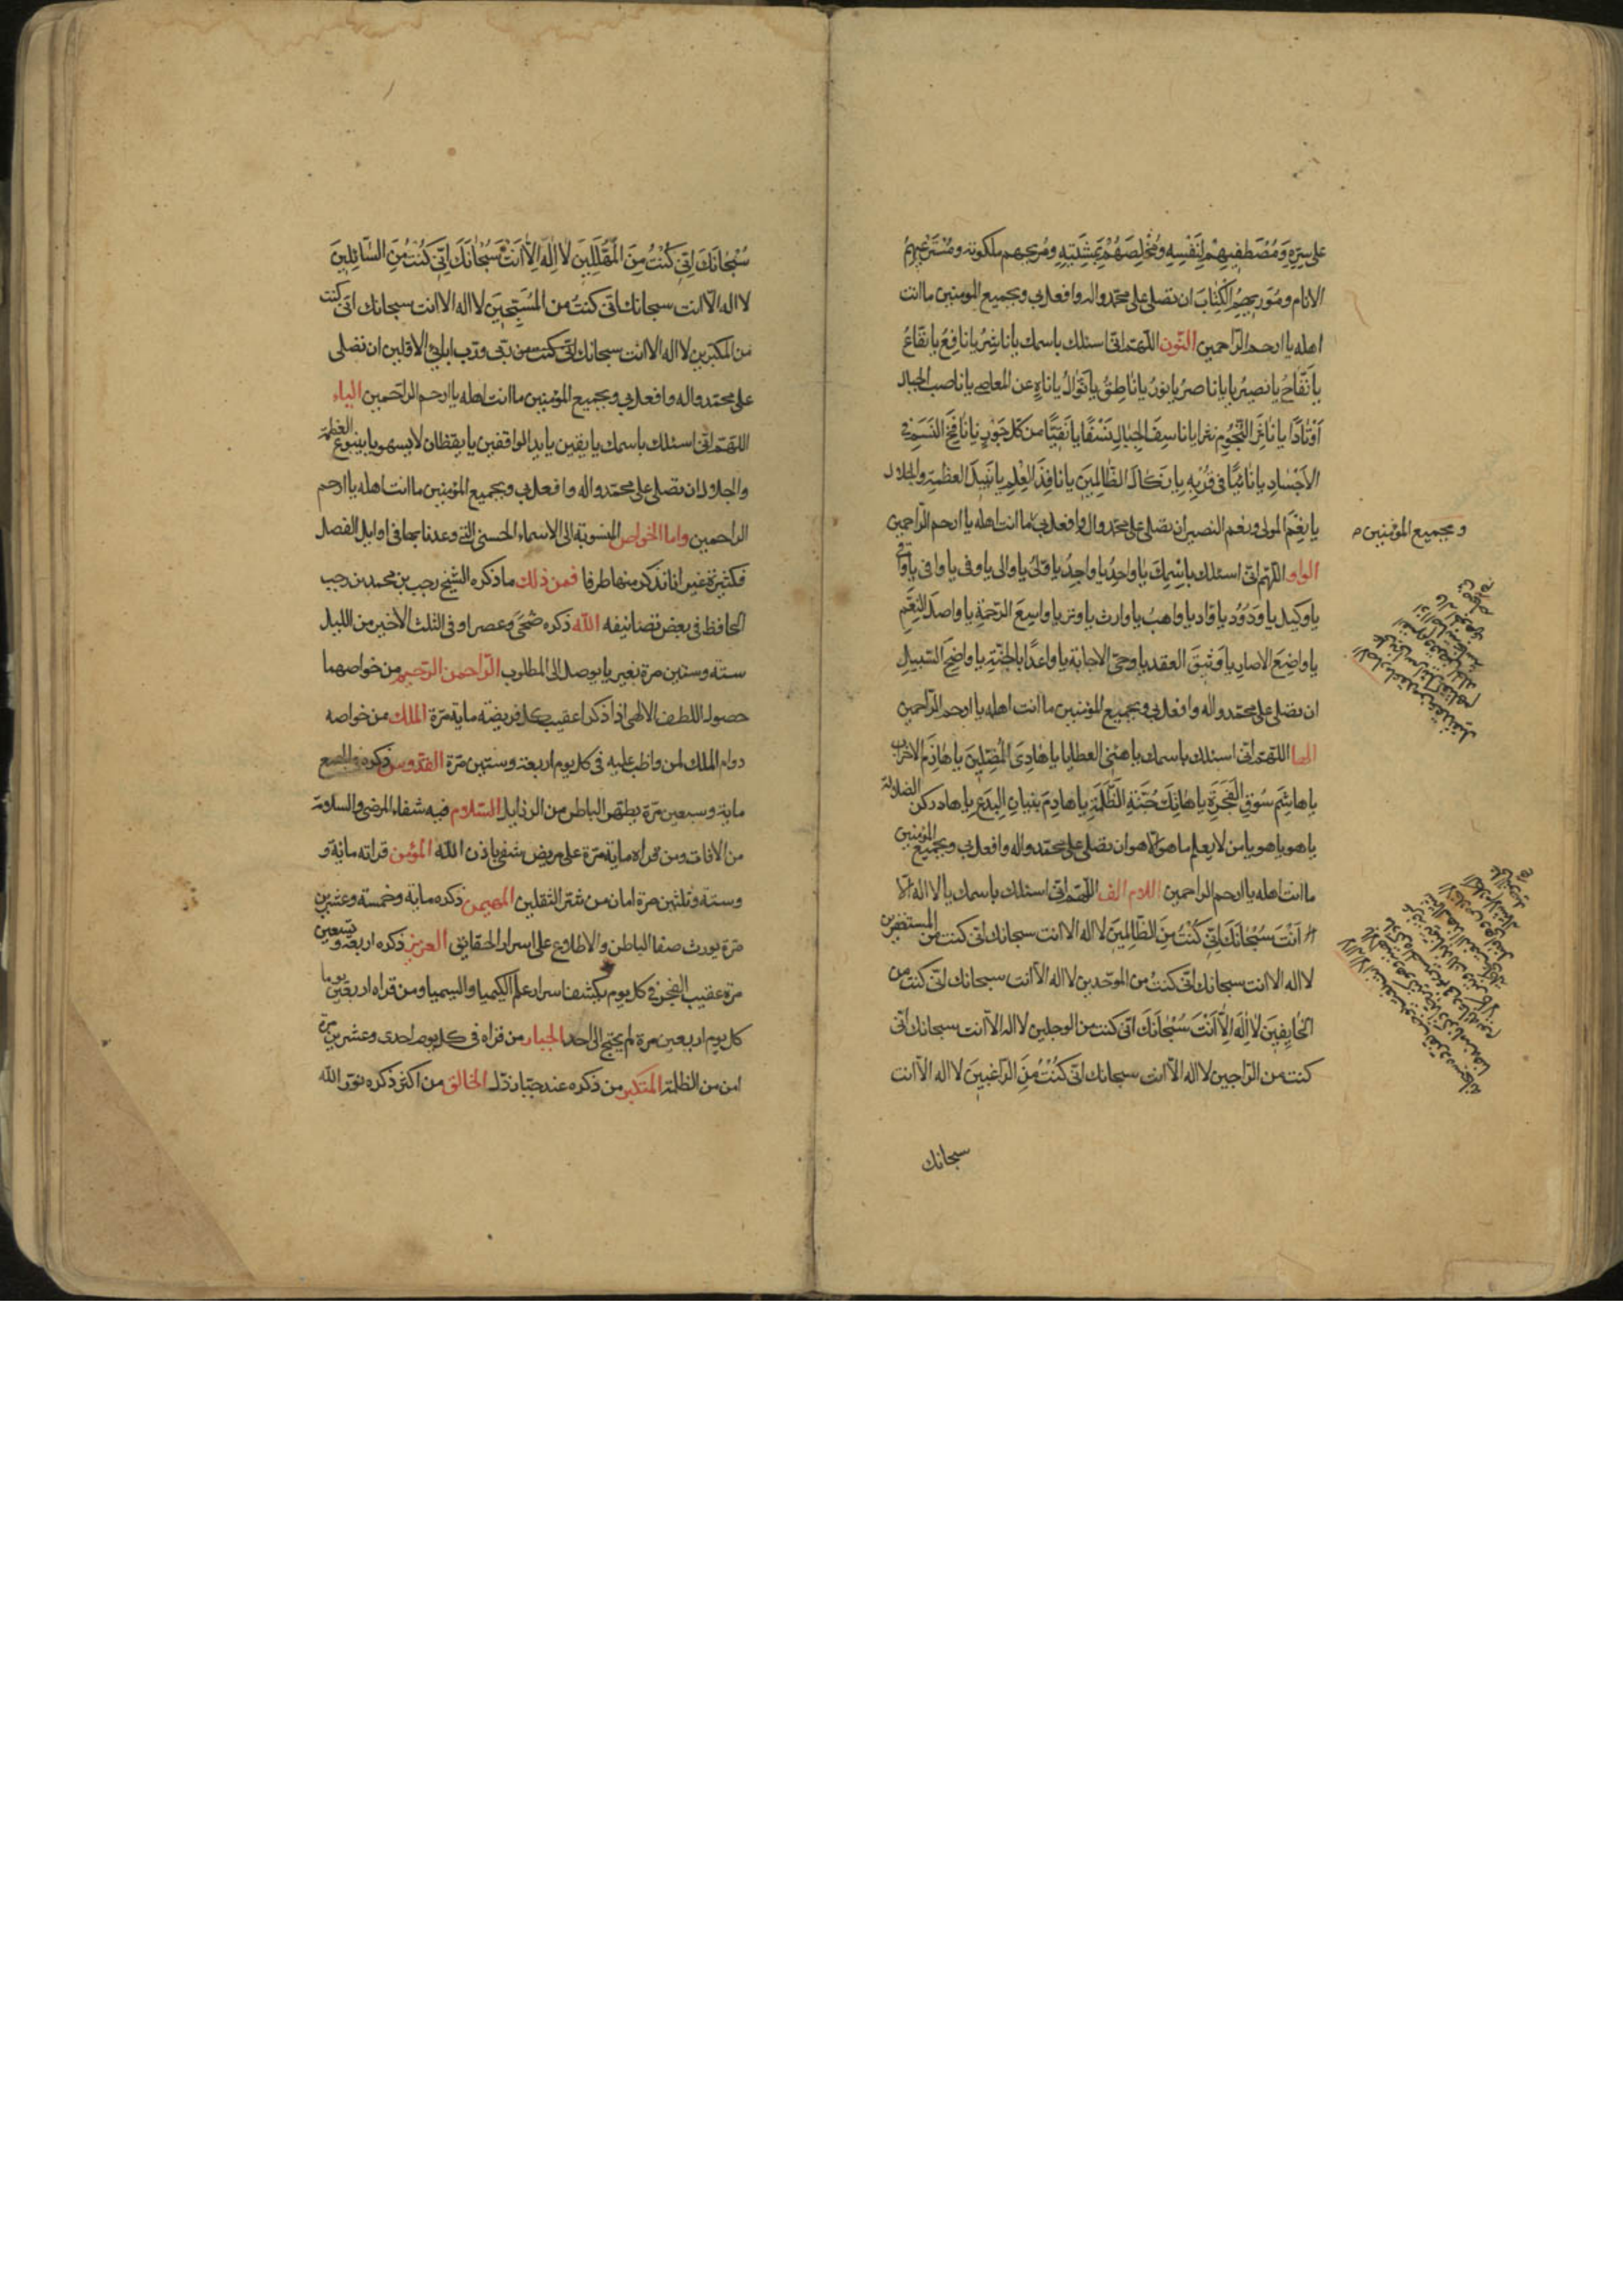 على سره ومصطفيهم لنفسه ومخلصهم بمشيته ومريحهم ملكوته ومسترعيهم
الانام ومورثهم الكتاب ان تصلى على محمد واله وافعل بى وبجميع المومنين ما انت
اهله يا ارحم الراحمين النون اللهم انى اسئلك باسمك يا ناشر يا نافع يا نفاع
يا نفاح يا نصير يا ناصر يا نور يا ناطق يا نوال يا ناه عن المعاصى يا ناصب الجبال
اوتادا يا ناثر النجوم نثرا يا ناسف الجبال نسفا يا نقيا من كل جور يا نافخ النسم فى
الاجساد يا نائيا فى قربه يا نكال الظالمين يا نافذ العلم يا نبيل العظمة والجلال
يا نعم المولى ونعم النصير ان تصلى على محمد واله وافعل بى ما انت اهله يا ارحم الراحمين
وبجميع المؤمنين
الواو اللهم انى اسئلك باسمك يا واحد يا واجد يا ولى يا والى يا وفى يا وافى يا واقى
يا وكيل يا ودود يا واد يا واهب يا وارث يا وتر يا واسع الرحمة يا واصل النعم
يا واضع الاصار يا وثيق العقد يا وحى الاجابة يا واعدا بالجنة يا واضح السبيل
ان تصلى على محمد واله وافعل بى وبجميع المؤمنين ما انت اهله يا ارحم الراحمين
الها اللهم انى اسئلك باسمك يا هنئ العطايا يا هادى المضلين يا هازم الاحزاب
يا هاشم سوق الفجرة يا هاتك جنة الظلمة يا هادم بنيان البدع يا هاد ركن الضلالة
يا هو يا هو يا من لا يعلم ما هو الا هو ان تصلى على محمد واله وافعل بى وبجميع المؤمنين
ما انت اهله يا ارحم الراحمين اللام الف اللهم انى اسئلك باسمك يا لا اله الا
انت سبحانك انى كنت من الظالمين لا اله الا انت سبحانك انى كنت من المستغفرين
لا اله الا انت سبحانك انى كنت من الموحدين لا اله الا انت سبحانك انى كنت من
الخايفين لا اله الا انت سبحانك انى كنت من الوجلين لا اله الا انت سبحانك انى
كنت من الراجين لا اله الا انت سبحانك انى كنت من الراغبين لا اله الا انت
سبحانك
سبحانك انى كنت من المهللين لا اله الا انت سبحانك انى كنت من السائلين
لا اله الا انت سبحانك انى كنت من المسبحين لا اله الا انت سبحانك انى كنت
من المكبرين لا اله الا انت سبحانك انى كنت من ربى ورب ابائى الاولين ان تصلى
على محمد واله وافعل بى وبجميع المؤمنين ما انت اهله يا ارحم الراحمين الياء
اللهم انى اسئلك باسمك يا يقين يا يد الواثقين يا يقظان لا يسهو يا ينبوع العظمة
والجلال ان تصلى على محمد واله وافعل بى وبجميع المؤمنين ما انت اهله يا ارحم
الراحمين واما الخواص المنسوبة الى الاسماء الحسنى التى وعدنا بها فى اوايل الفصل
فكثيرة غير انا نذكر منها طرفا فمن ذلك ما ذكره الشيخ رجب بن محمد بن رجب
الحافظ فى بعض تصانيفه الله ذكره ضحى وعصرا وفى الثلث الاخير من الليل
ستة وستين مرة بغير يا يوصل الى المطلوب الرحمن الرحيم من خواصهما
حصول اللطف الالهى اذا ذكرا عقيب كل فريضة ماية مرة الملك من خواصه
دوام الملك لمن واظب عليه فى كل يوم اربعة وستين مرة القدوس ذكره فى الجمع
ماية وسبعين مرة يطهر الباطن من الرذايل السلام فيه شفاء المرضى والسلامة
من الافات ومن قراه ماية مرة على مريض شفى باذن الله المؤمن قراته ماية و
وستة وثلثين مرة امان من شر الثقلين المهيمن ذكره ماية وخمسة وعشرين
مرة يورث صفا الباطن والاطلاع على اسرار الحقايق العزيز ذكره اربعة وتسعين
مرة عقيب الفجر فى كل يوم يكشف اسرار علم الكيميا والسيميا ومن قراه اربعين يوما
كل يوم اربعين مرة لم يحتج الى احد الجبار من قراه فى كل يوم احدى وعشرين مرة
امن من الظلمة المتكبر من ذكره عند جبار ذل الخالق من اكثر ذكره نور الله